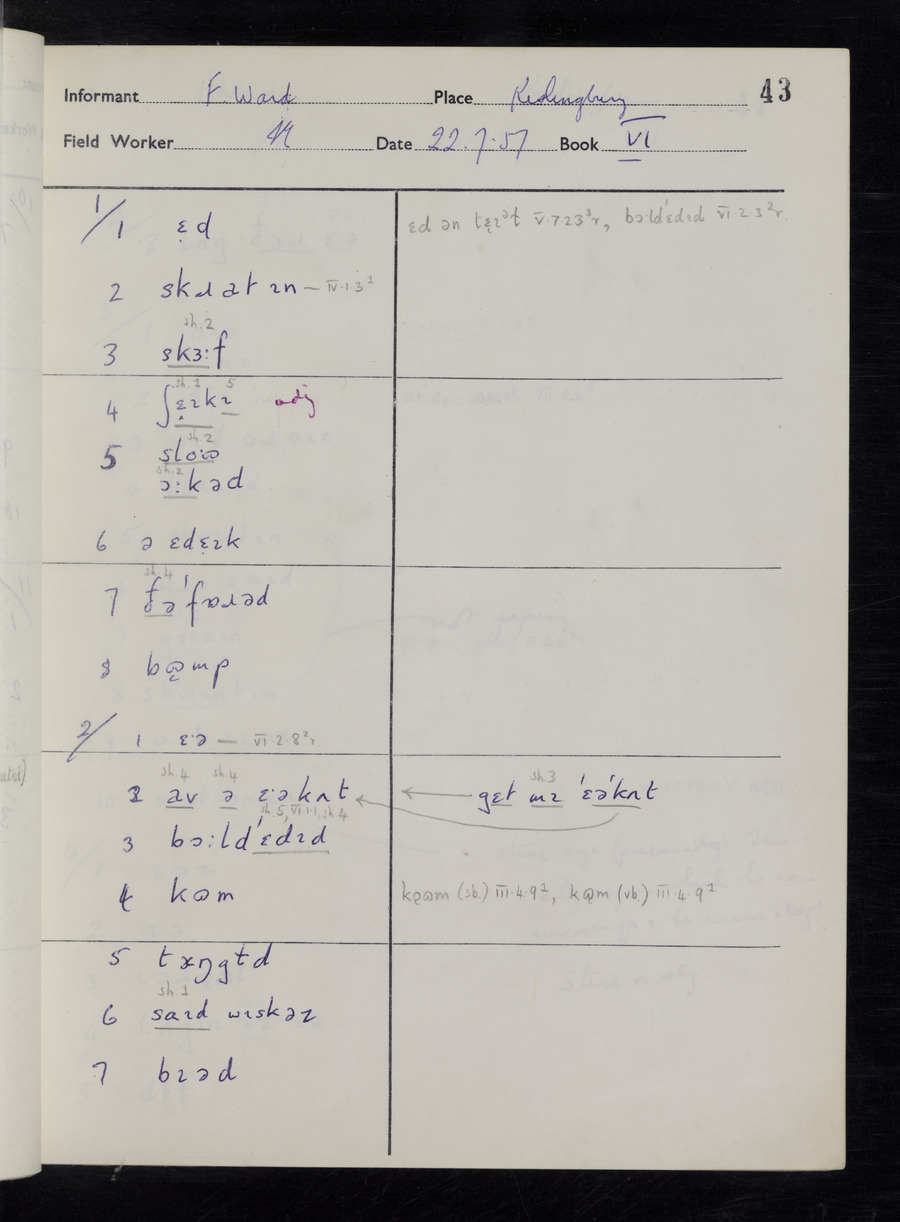 43
Informant F. Ward Place Kedingbury
Field Worker N Date 22.7.57 Book VI
1/1 ɛ̣d ɛd ən tɛ̣ɪᵊt V.7.23³r, bɔːldˈɛdɪd VI.2.3²r.
2 skɹatɪn — IV.1.3²
sh.2
3 skɜːf
sh.1 5
4 ʃɛ̣ɪkɪ adj
sh.2
5 sloːɷ
sh.2
ɔːkəd
6 ə ɛdɛ̣ɪk
sh.4
7 fəˈfɒɹəd
8 bɷ̣mp
2/ 1 ɛ·ə — VI.2.8²r
sh.4 sh.4 sh.3
2 av ə ɛ·əkʌt gɛt mɪ ˈɛəˈkʌt
sh.5, VI.1.1, sh.4
3 bɔːldˈɛdɪd
4 kɷm kɷ̣m (sb.) III.4.9², kɷm (vb.) III.4.9²
5 tæŋgɫd
sh.1
6 saɪd wɪskəz
7 bɪəd